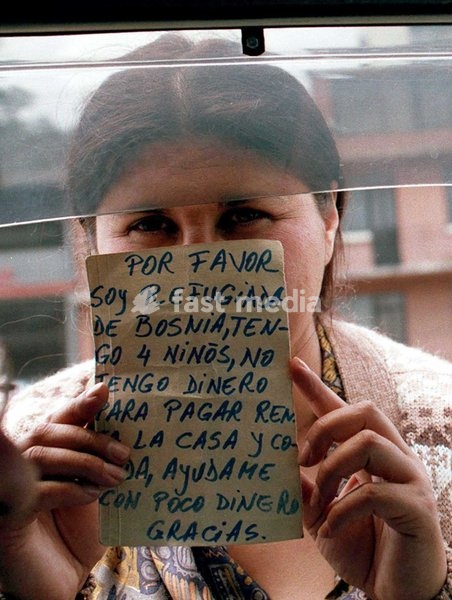 POR FAVOR
SOY REFUGIADA
DE BOSNIA, TEN-
GO 4 NINŌS, NO
TENGO DINERO
PARA PAGAR REN-
LA CASA Y CO-
AYUDAME
CON POCO DINERO
GRACIAS.
fast media